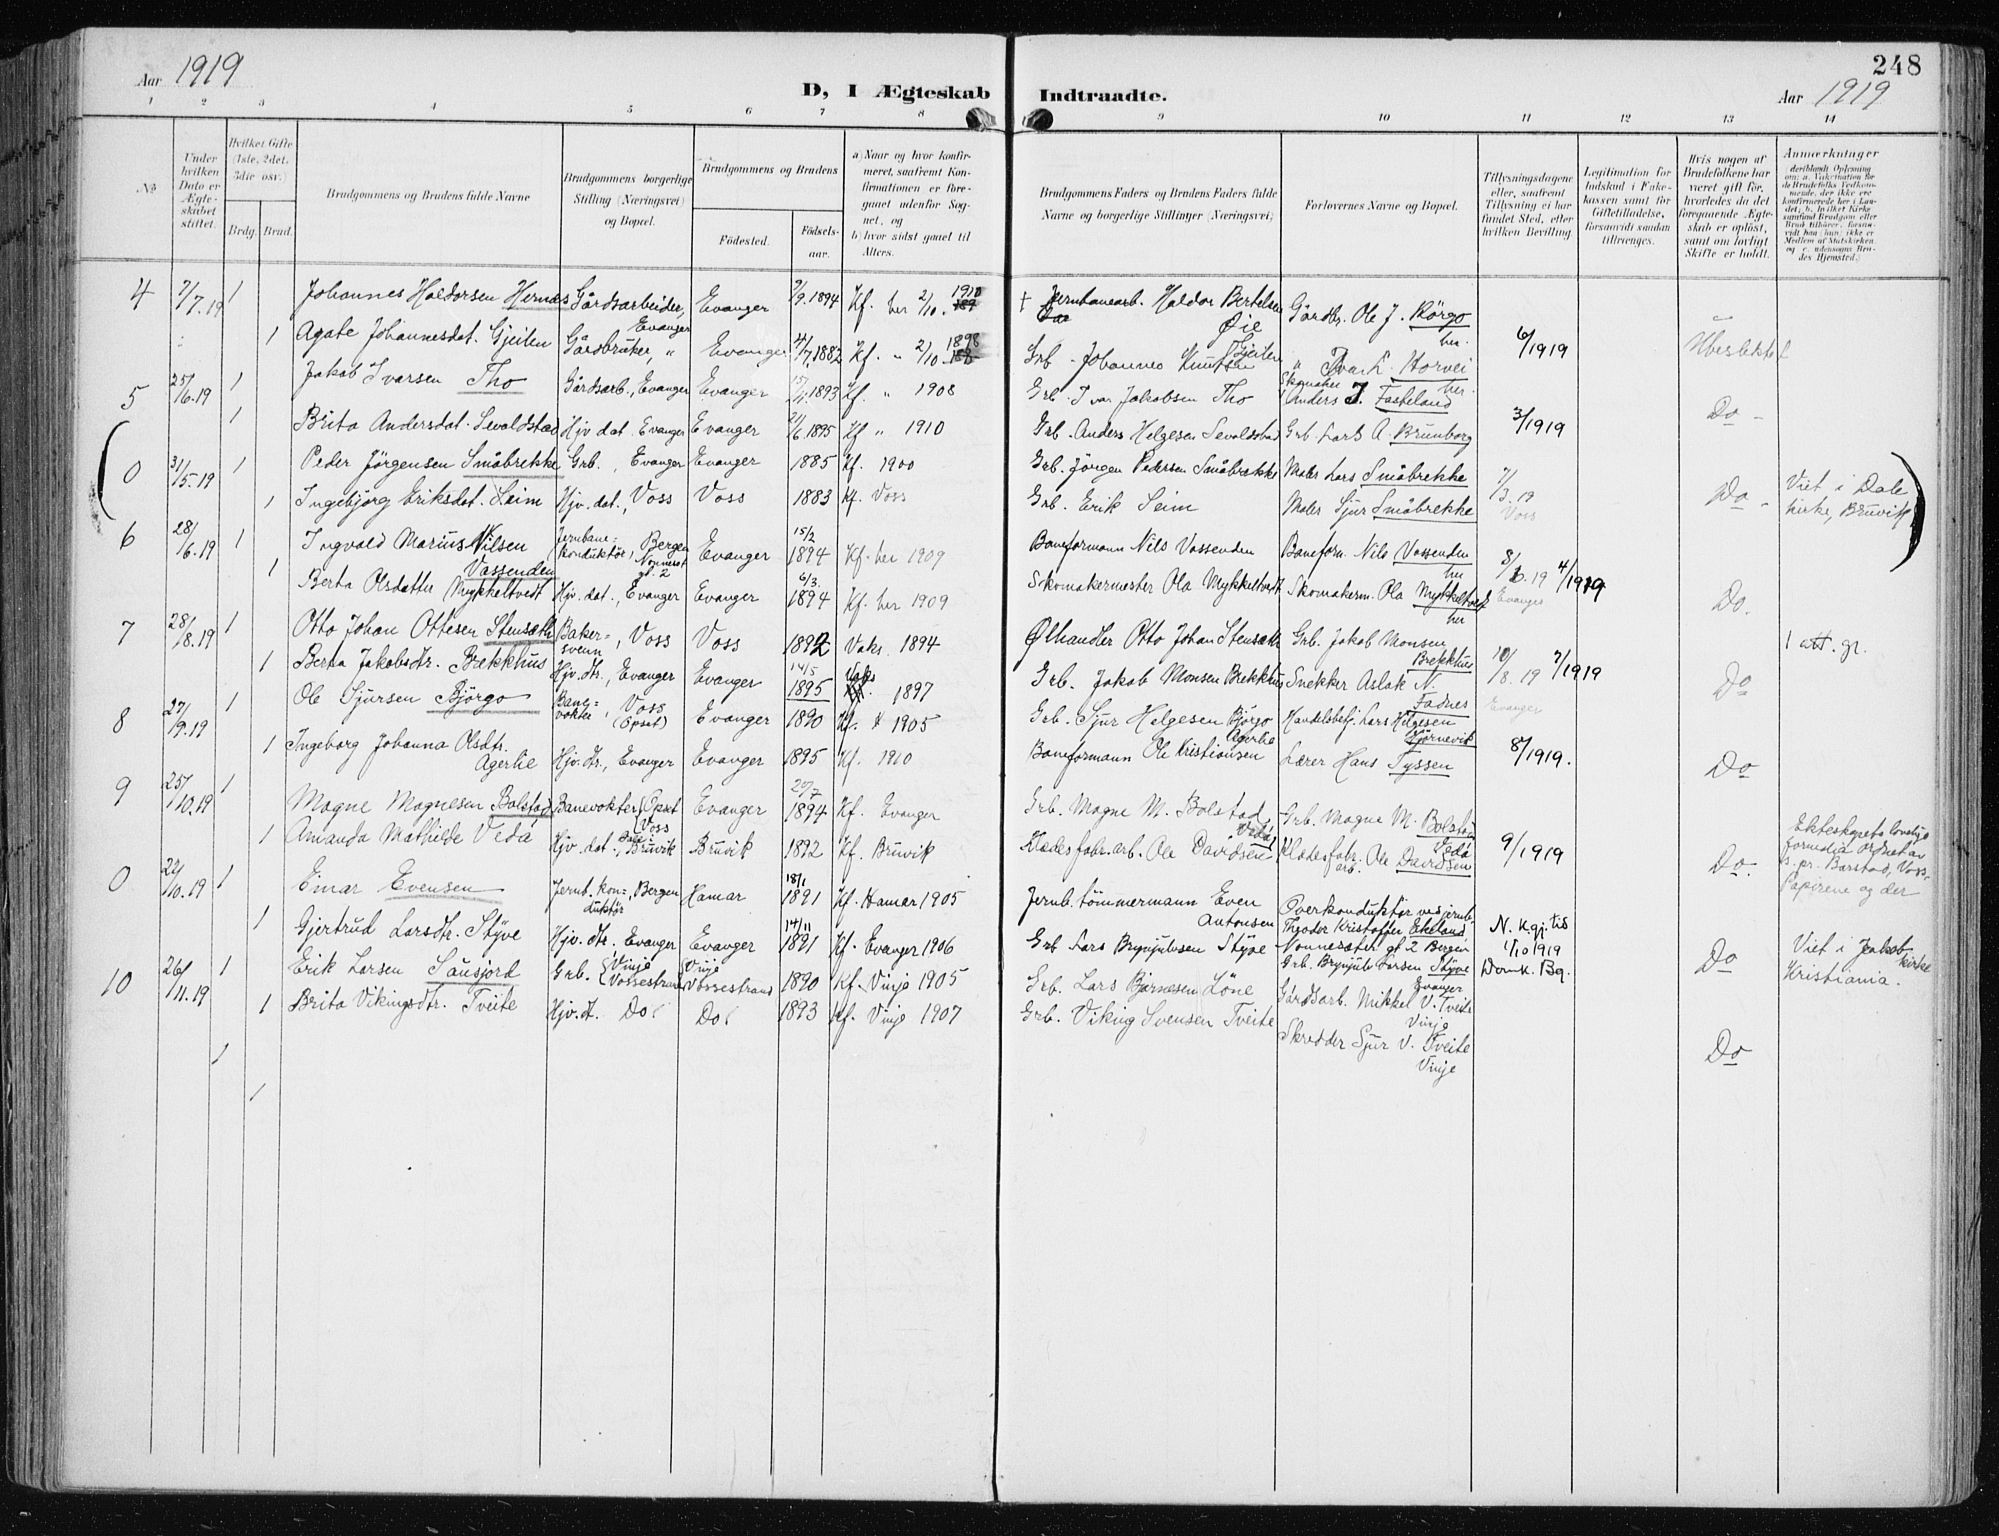 Aar 1919
D, I Ægteskab Indtraadte.
248
Aar 1919
1 2 3 4 5 6 7 8 9 10 11 12 13 14
No
Under hvilken Dato er Ægteskabet stiftet.
Hvilket Gifte (1ste, 2det, 3die osv.)
Brdg. Brud.
Brudgommens og Brudens fulde Navne
Brudgommens borgerlige Stilling (Næringsvei) og Bopæl.
Brudgommens og Brudens
Fødested.
Fødselsaar.
a) Naar og hvor konfirmeret, saafremt Konfirmationen er foregaaet udenfor Sognet, og
b) hvor sidst gaaet til Alters.
Brudgommens Faders og Brudens Faders fulde Navne og borgerlige Stillinger (Næringsvei)
Forlovernes Navne og Bopæl.
Tillysningsdagene eller, saafremt Tillysning ei har fundet Sted, efter hvilken Bevilling
Legitimation for Indskud i Enkekassen samt for Giftetilladelse, forsaavidt saadan tiltrænges.
Hvis nogen af Brudefolkene har været gift før, hvorledes da det foregaaende Ægteskab er opløst, samt om lovligt Skifte er holdt.
Anmærkninger
4 7/7.19 1 Johannes Haldorsen Hernæs Gårdsarbeider, Evanger Evanger 7/9.1894 Kf. her 2/10.1910 † Jernbanearb. Haldor Bertelsen Øie Gårdbr. Ole J. Rörgo her.
1 Agate Johannesdat. Gjeilen Gårdbruker, " Evanger 1882 Kf. " 2/10 1898 Grb. Johannes Knutsen Gjeilen " Ivar L. Horvei her. 6/1919 Ubeslektet
5 25/6.19 1 Jakob Ivarsen Tho Gårdsarb., Evanger Evanger 1893 Kf. " 1908 Grb. Ivar Jakobsen Tho Skomaker Anders J. Fasteland
1 Brita Andersdat. Sevaldstad Hjv. dat. Evanger Evanger 1895 Kf " 1910 Grb. Anders Helgesen Sevaldstad Grb. Lars A. Brunborg 3/1919 Do
0 31/5.19 1 Peder Jörgensen Småbrekke Grb., Evanger Evanger 1885 Kf. 1900 Grb. Jörgen Pedersen Småbrekke Maler Lars Småbrekke
1 Ingebjörg Eriksdat. Seim Hjv. dat., Voss Voss 1883 Kf. Voss Grb. Erik Seim Maler Sjur Småbrekke 7/3.19 Voss Do Viet i Dale kirke, Bruvik
6 28/6.19 1 Ingvald Marius Nilsen Vassenden Jernbanekonduktör, Bergen Nonnesæt gt. 2 Evanger 15/2 1894 Kf. her 1909 Baneformann Nils Vassenden Baneform. Nils Vassenden her
1 Berta Olsdatter Mykkeltvedt Hjv. dat., Evanger Evanger 6/3 1894 Kf. her 1909 Skomakermester Ola Mykkeltvedt Skomakerm. Ola Mykkeltvedt her 8/6.19 Evanger 4/1919 Do.
7 28/8.19 1 Otto Johan Ottesen Stensæth Bakersvenn, Voss Voss 1892 Vaks. 1894 Ølhandler Otto Johan Stensæth Grb. Jakob Monsen Brekkhus 1 att. gr.
1 Berta Jakobsdtr. Brekkhus Hjv. dtr., Evanger Evanger 14/5 1895 Vaks 1897 Grb. Jakob Monsen Brekkhus Snekker Aslak N. Fadnes 10/8.19 Evanger 7/1919 Do
8 27/9.19 1 Ole Sjursen Björgo Banevokter, Voss (Opset) Evanger 1890 Kf. 1905 Grb. Sjur Helgesen Björgo Handelsbetj. Lars Helgesen Hjörnevik
1 Ingeborg Johanna Olsdtr. Agerlie Hjv. dtr., Evanger Evanger 1895 Kf. 1910 Baneformann Ole Kristiansen Agerlie Lærer Hans Tyssen 8/1919. Do
9 25/10.19 1 Magne Magnesen Bolstad Banevokter Opset Voss Evanger 1894 Kf. Evanger Grb. Magne M. Bolstad Grb. Magne M. Bolstad
1 Amanda Mathilde Vedå Hjv. dat., Dale Bruvik Bruvik 1892 Kf. Bruvik Klædesfabr.arb. Ole Davidsen Vedå Klædesfabr. arb. Ole Davidsen Vedå 9/1919 Do. Ekteskapets lovelige ordnet av s. pr. Barstad, Voss. Papirene og der
0 22/10.19 1 Einar Evensen Jernb. konduktör, Bergen Hamar 18/1 1891 Kf. Hamar 1905 Jernb. tömmermann Even Antonsen Overkonduktör ved jernb. Theodor Kristoffer Ekeland Nonnesæter gt 2 Bergen N. K.gj. tid 1/10 1919 Domk. Bg.
1 Gjertrud Larsdtr. Stÿve Hjv. dtr. Evanger Evanger 14/11 1891 Kf. Evanger 1906 Grb Lars Brynjulvsen Stÿve Grb. Brynjulv Larsen Stÿve Evanger Do Viet i Jakob kirke Kristiania.
10 26/11.19 1 Erik Larsen Sausjord Grb. Vinje Vossestrand Vinje Vossestrand 1890 Kf. Vinje 1905 Grb. Lars Bjørnesen Löne Gårdsarb. Mikkel V. Tveite Vinje
1 Brita Vikingsdtr. Tveite Hjv. dt. Do Do 1893 Kf. Vinje 1907 Grb. Viking Svensen Tveite Skredder Sjur V. Tveite Vinje Do